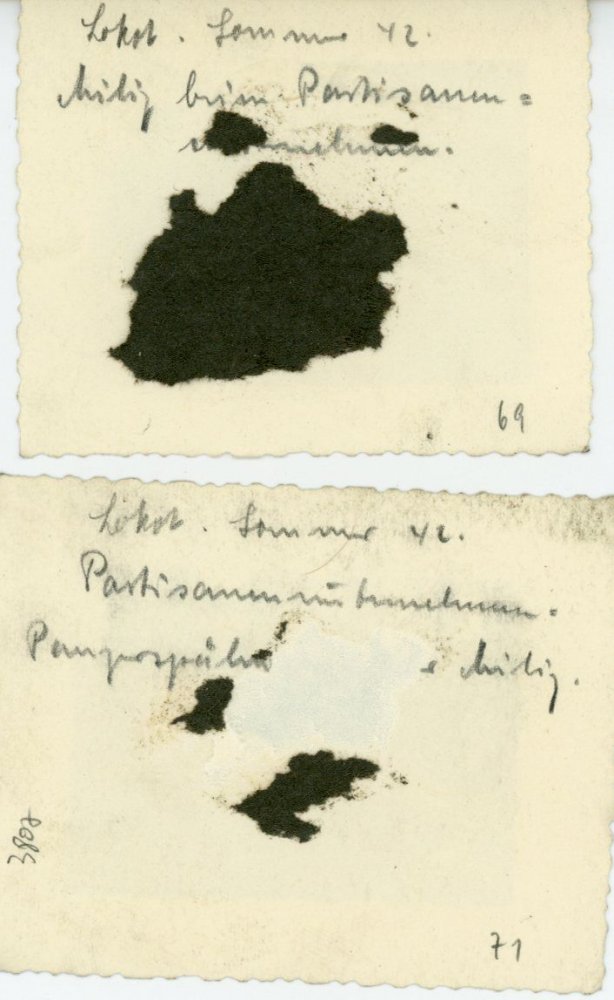 Lokot. Sommer 42.
Miliz beim Partisanen=
unternehmen.
69
Lokot. Sommer 42.
Partisanenunternehmen.
Panzerspäh e Miliz.
3807
71